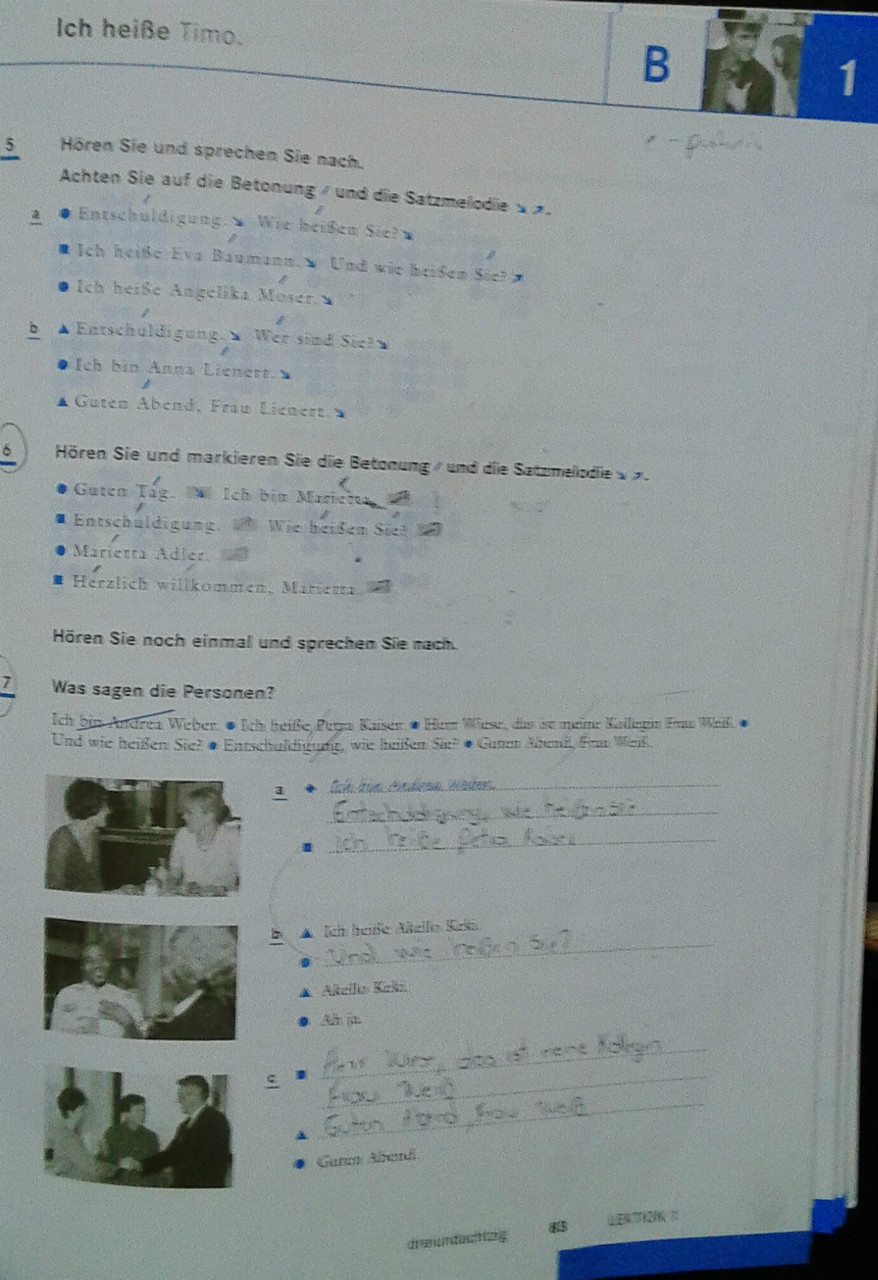 Ich heiße Timo.
B
1
5
Hören Sie und sprechen Sie nach.
Achten Sie auf die Betonung / und die Satzmelodie ↘ ↗.
a ● Entschuldigung. ↘ Wie heißen Sie? ↘
■ Ich heiße Eva Baumann. ↘ Und wie heißen Sie? ↗
● Ich heiße Angelika Moser. ↘
b ▲ Entschuldigung. ↘ Wer sind Sie? ↘
● Ich bin Anna Lienert. ↘
▲ Guten Abend, Frau Lienert. ↘
6 Hören Sie und markieren Sie die Betonung / und die Satzmelodie ↘ ↗.
● Guten Tag. ↘ Ich bin Marietta
■ Entschuldigung. Wie heißen Sie?
● Marietta Adler.
■ Herzlich willkommen, Marietta.
Hören Sie noch einmal und sprechen Sie nach.
7 Was sagen die Personen?
Ich bin Andrea Weber. ● Ich heiße Petra Kaiser. ● Herr Wiese, das ist meine Kollegin Frau Weiß. ●
Und wie heißen Sie? ● Entschuldigung, wie heißen Sie? ● Guten Abend, Frau Weiß.
a ◆ Ich bin Andrea Weber.
Entschuldigung, wie heißen Sie
■ Ich heiße Petra Kaiser
b ▲ Ich heiße Akello Keki.
● Und wie heißen Sie?
▲ Akello Keki.
● Ah ja.
c ■ Herr Wiese, das ist meine Kollegin
Frau Weiß
▲ Guten Abend, Frau Weiß
● Guten Abend.
dreiundachtzig 83 LEKTION 1